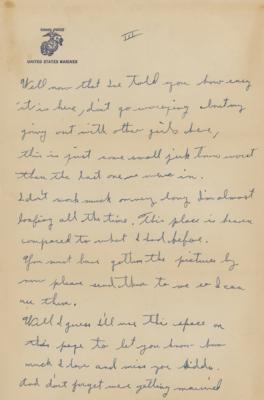 III
UNITED STATES MARINES
Well now that I've told you how easy
it is here, don't go worrying about my
going out with other girls here,
this is just some small jerk town worst
than the last one we were in.
I don't work much or very long I'm almost
loafing all the time. This place is heaven
compared to what I had before.
You must have gotten the pictures by
now please send them to me so I can
see them.
Well I guess I'll use this space on
this page to let you know how
much I love and miss you kiddo.
And don't forget we're getting married